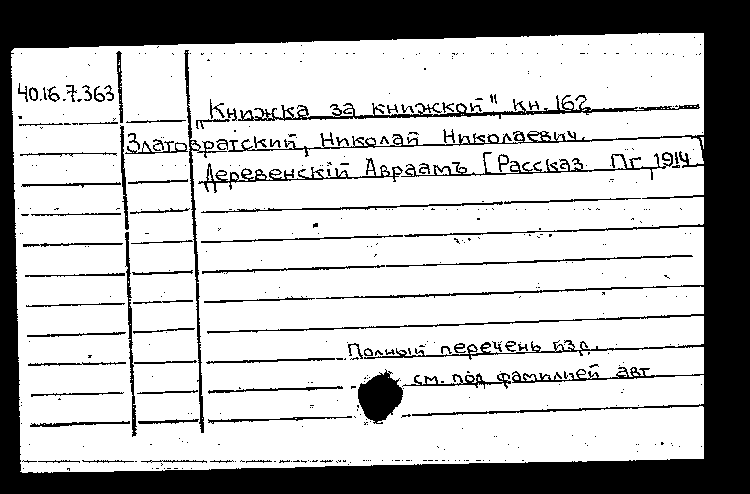 40.16.7.363
„Книжка за книжкой", кн. 162
Златовратский, Николай Николаевич.
Деревенскiй Авраамъ. [Рассказ Пг, 1914]
Полный перечень изд.
см. под фамилией авт